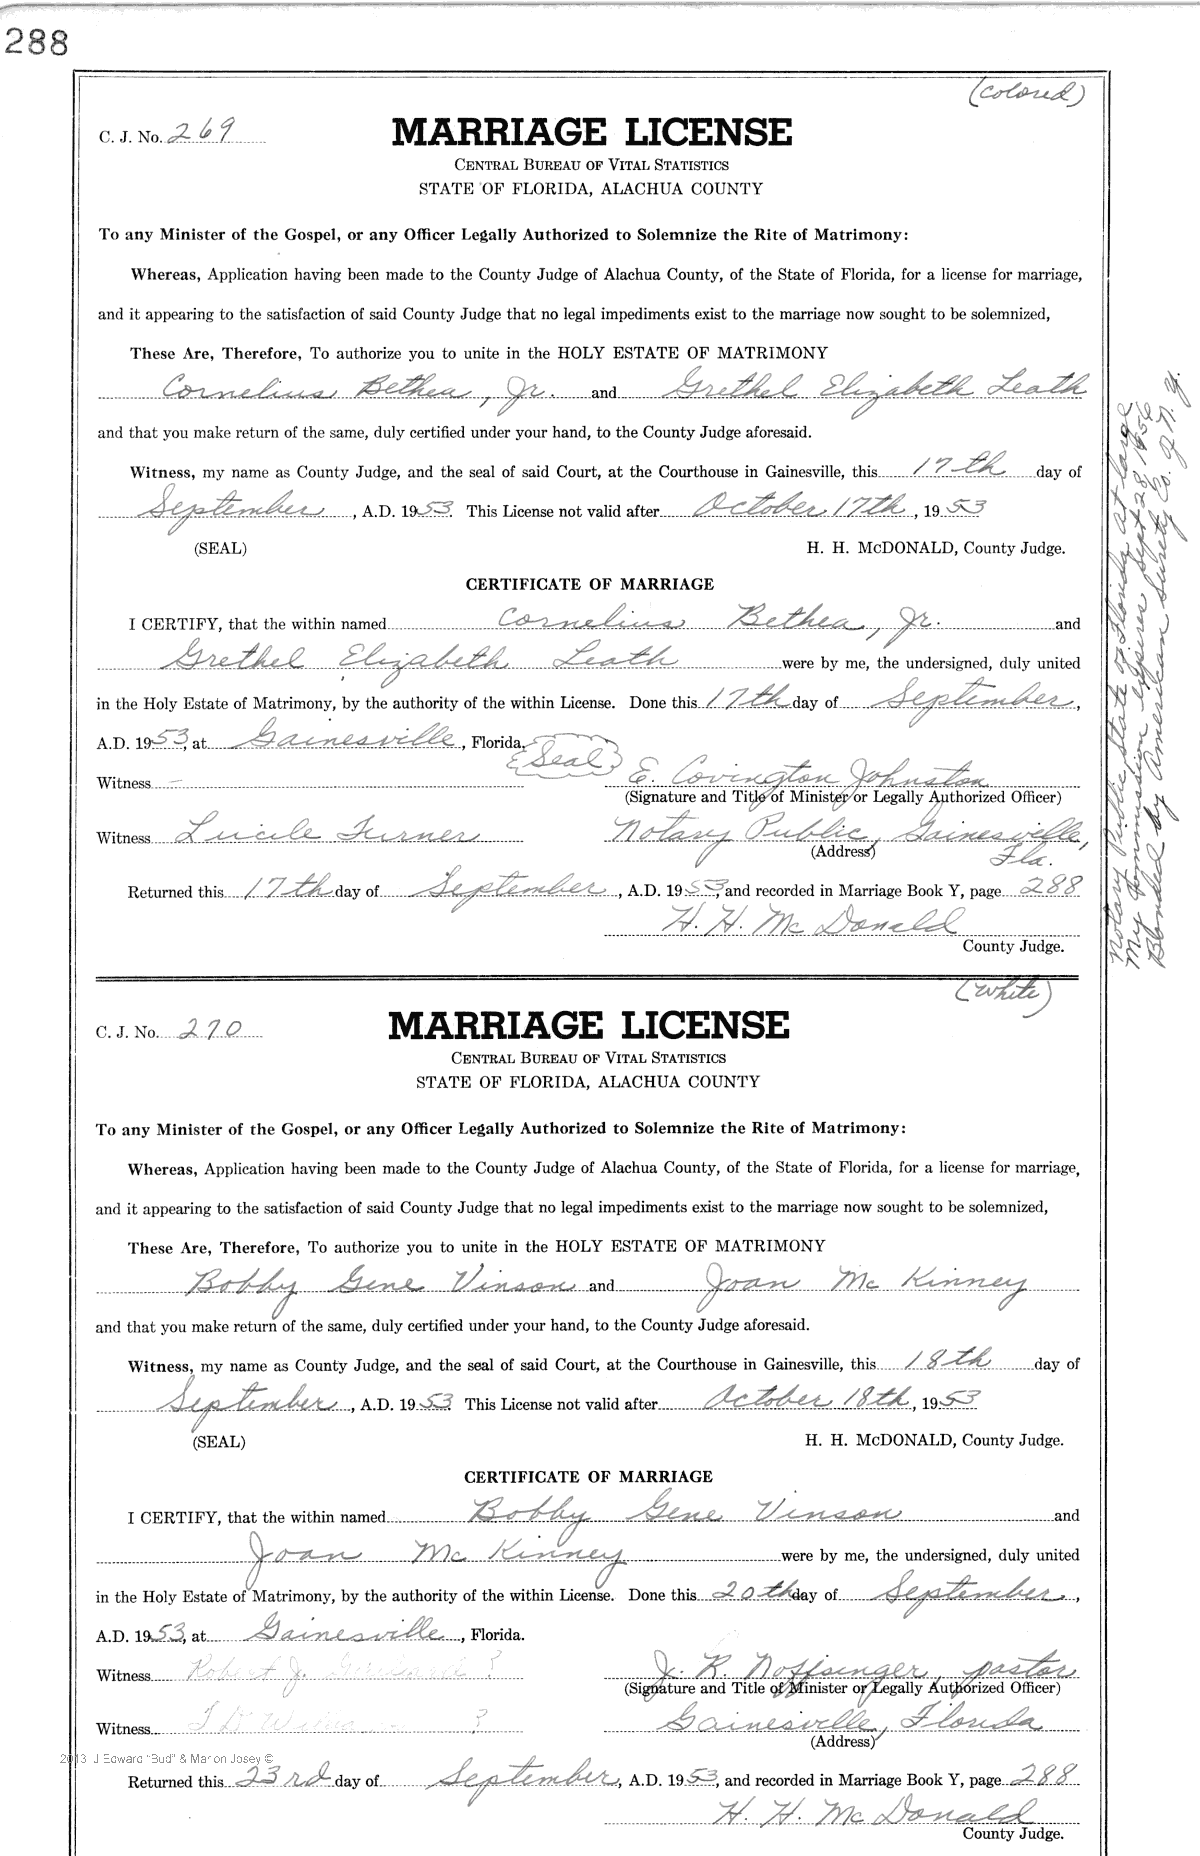 288
(colored)
C. J. No. 269
MARRIAGE LICENSE
CENTRAL BUREAU OF VITAL STATISTICS
STATE OF FLORIDA, ALACHUA COUNTY
To any Minister of the Gospel, or any Officer Legally Authorized to Solemnize the Rite of Matrimony:
Whereas, Application having been made to the County Judge of Alachua County, of the State of Florida, for a license for marriage,
and it appearing to the satisfaction of said County Judge that no legal impediments exist to the marriage now sought to be solemnized,
These Are, Therefore, To authorize you to unite in the HOLY ESTATE OF MATRIMONY
Cornelius Bethea, Jr. and Grethel Elizabeth Leath
and that you make return of the same, duly certified under your hand, to the County Judge aforesaid.
Witness, my name as County Judge, and the seal of said Court, at the Courthouse in Gainesville, this 17th day of
September, A.D. 1953. This License not valid after October 17th, 1953
(SEAL) H. H. McDONALD, County Judge.
CERTIFICATE OF MARRIAGE
I CERTIFY, that the within named Cornelius Bethea, Jr. and
Grethel Elizabeth Leath were by me, the undersigned, duly united
in the Holy Estate of Matrimony, by the authority of the within License. Done this 17th day of September,
A.D. 1953, at Gainesville, Florida.
Seal
Witness - E. Covington Johnston
(Signature and Title of Minister or Legally Authorized Officer)
Witness Lucile Turner Notary Public, Gainesville,
(Address) Fla.
Returned this 17th day of September, A.D. 1953, and recorded in Marriage Book Y, page 288
H. H. McDonald
County Judge.
Notary Public, State of Florida at large
My Commission expires Sept 28, 1956
Bonded by American Surety Co. of N. Y.
(white)
C. J. No. 270
MARRIAGE LICENSE
CENTRAL BUREAU OF VITAL STATISTICS
STATE OF FLORIDA, ALACHUA COUNTY
To any Minister of the Gospel, or any Officer Legally Authorized to Solemnize the Rite of Matrimony:
Whereas, Application having been made to the County Judge of Alachua County, of the State of Florida, for a license for marriage,
and it appearing to the satisfaction of said County Judge that no legal impediments exist to the marriage now sought to be solemnized,
These Are, Therefore, To authorize you to unite in the HOLY ESTATE OF MATRIMONY
Bobby Gene Vinson and Joan McKinney
and that you make return of the same, duly certified under your hand, to the County Judge aforesaid.
Witness, my name as County Judge, and the seal of said Court, at the Courthouse in Gainesville, this 18th day of
September, A.D. 1953. This License not valid after October 18th, 1953
(SEAL) H. H. McDONALD, County Judge.
CERTIFICATE OF MARRIAGE
I CERTIFY, that the within named Bobby Gene Vinson and
Joan McKinney were by me, the undersigned, duly united
in the Holy Estate of Matrimony, by the authority of the within License. Done this 20th day of September,
A.D. 1953, at Gainesville, Florida.
Witness Robert J. ? J. R. Noffsinger, pastor
(Signature and Title of Minister or Legally Authorized Officer)
Witness ? Gainesville, Florida
(Address)
2013 J Edward "Bud" & Marion Josey ©
Returned this 23rd day of September, A.D. 1953, and recorded in Marriage Book Y, page 288
H. H. McDonald
County Judge.